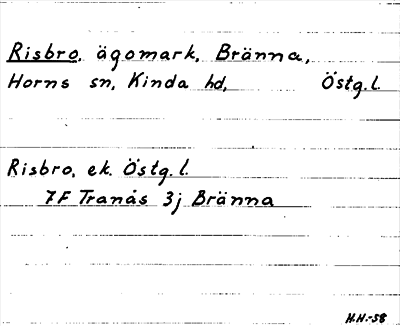 Risbro, ägomark, Bränna,
Horns sn, Kinda hd, Östg.l.
Risbro, ek. Östg.l.
7F Tranås 3j Bränna
H.H.-58